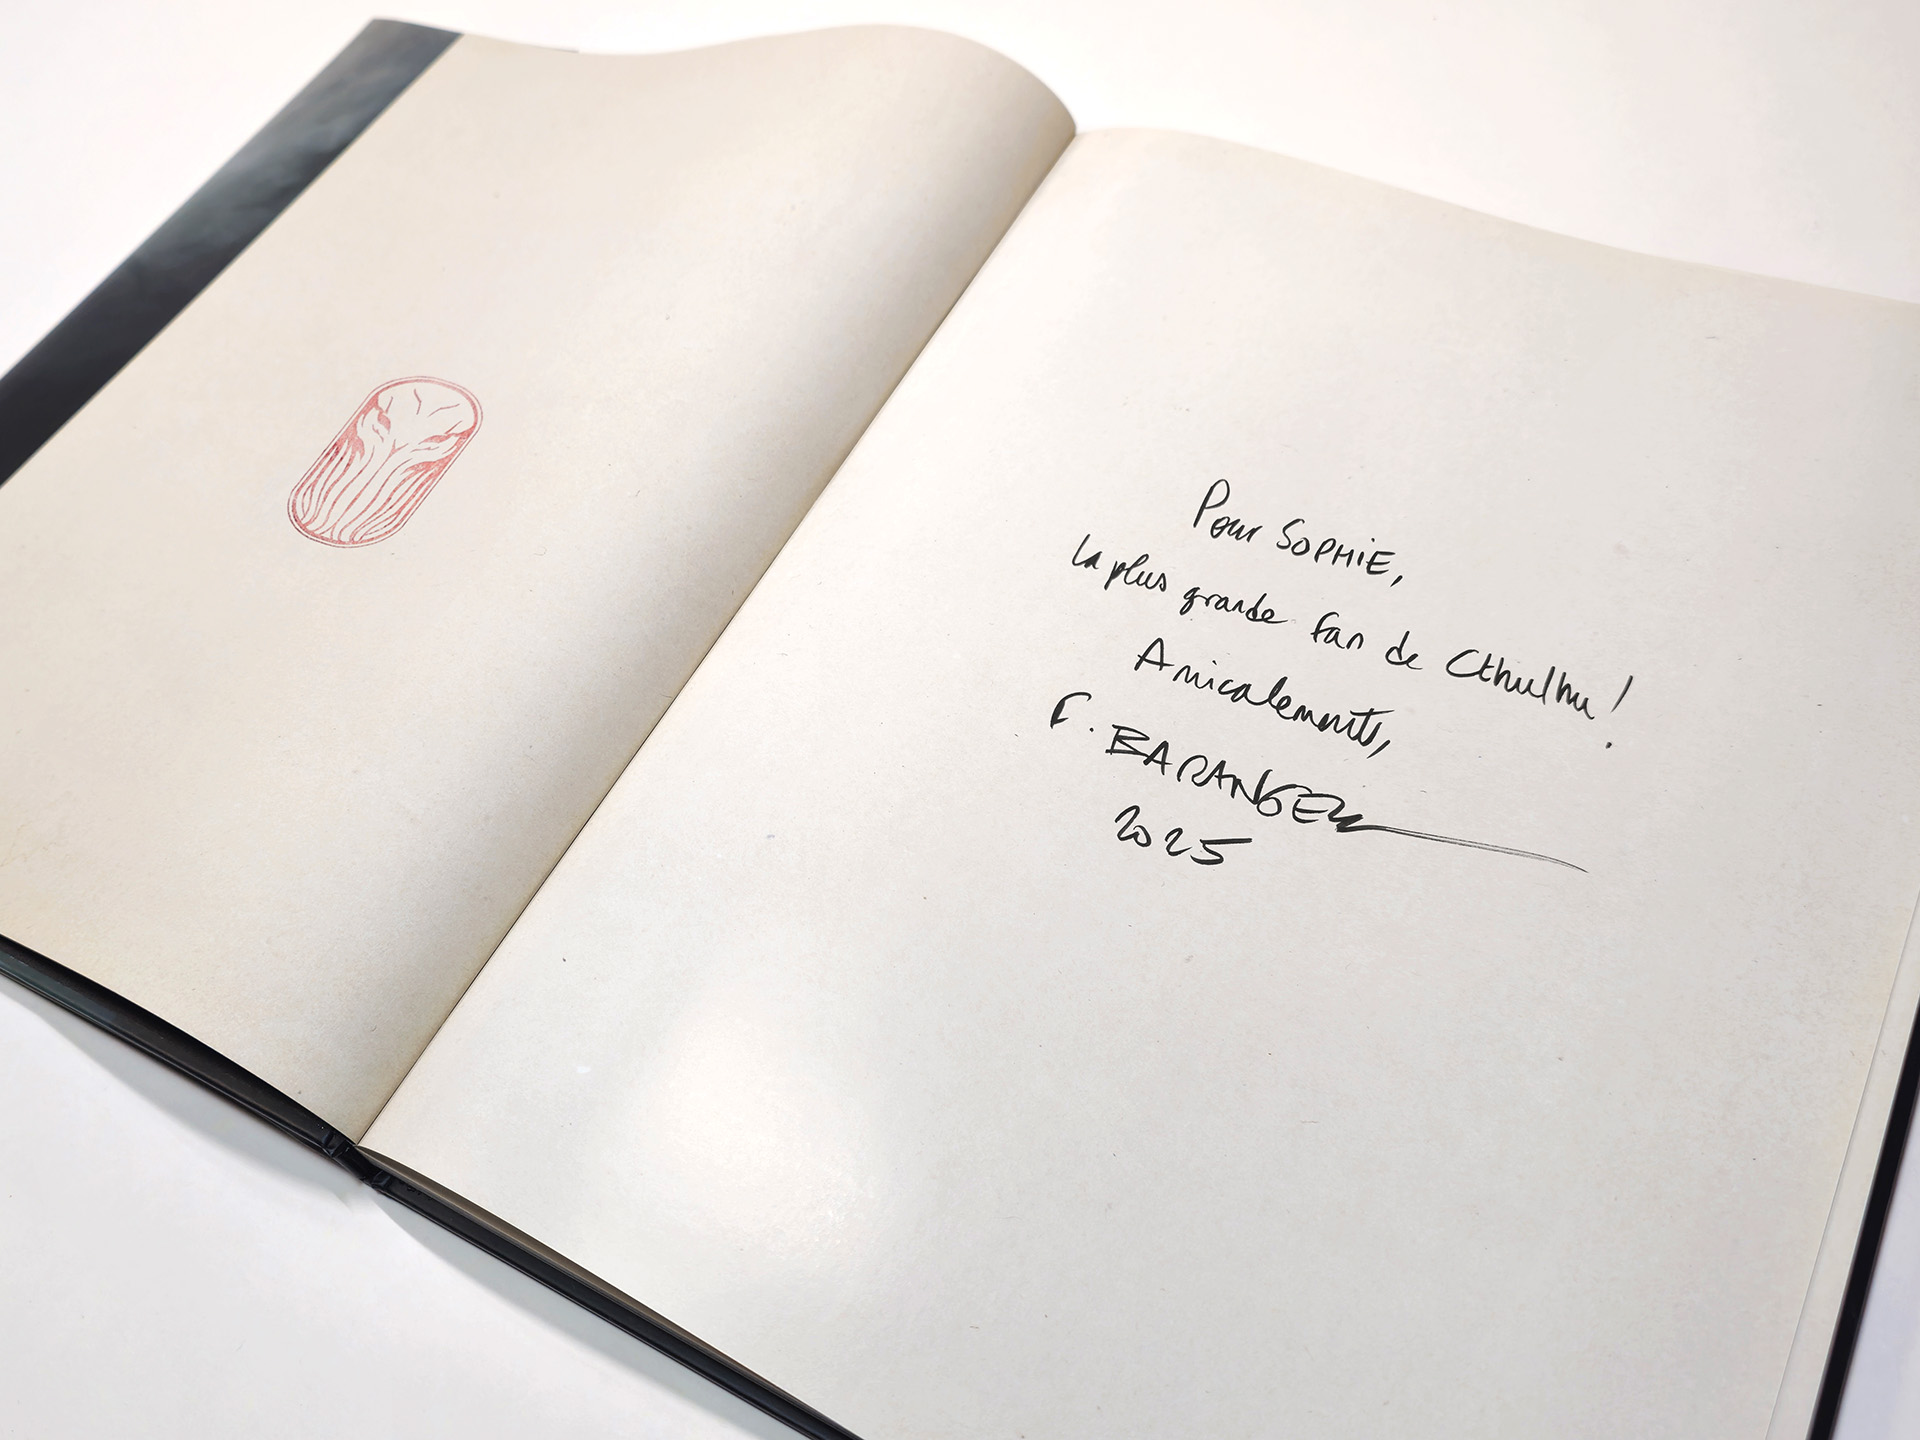 Pour SOPHIE,
la plus grande fan de Cthulhu !
Amicalement,
F. BARANGER
2025